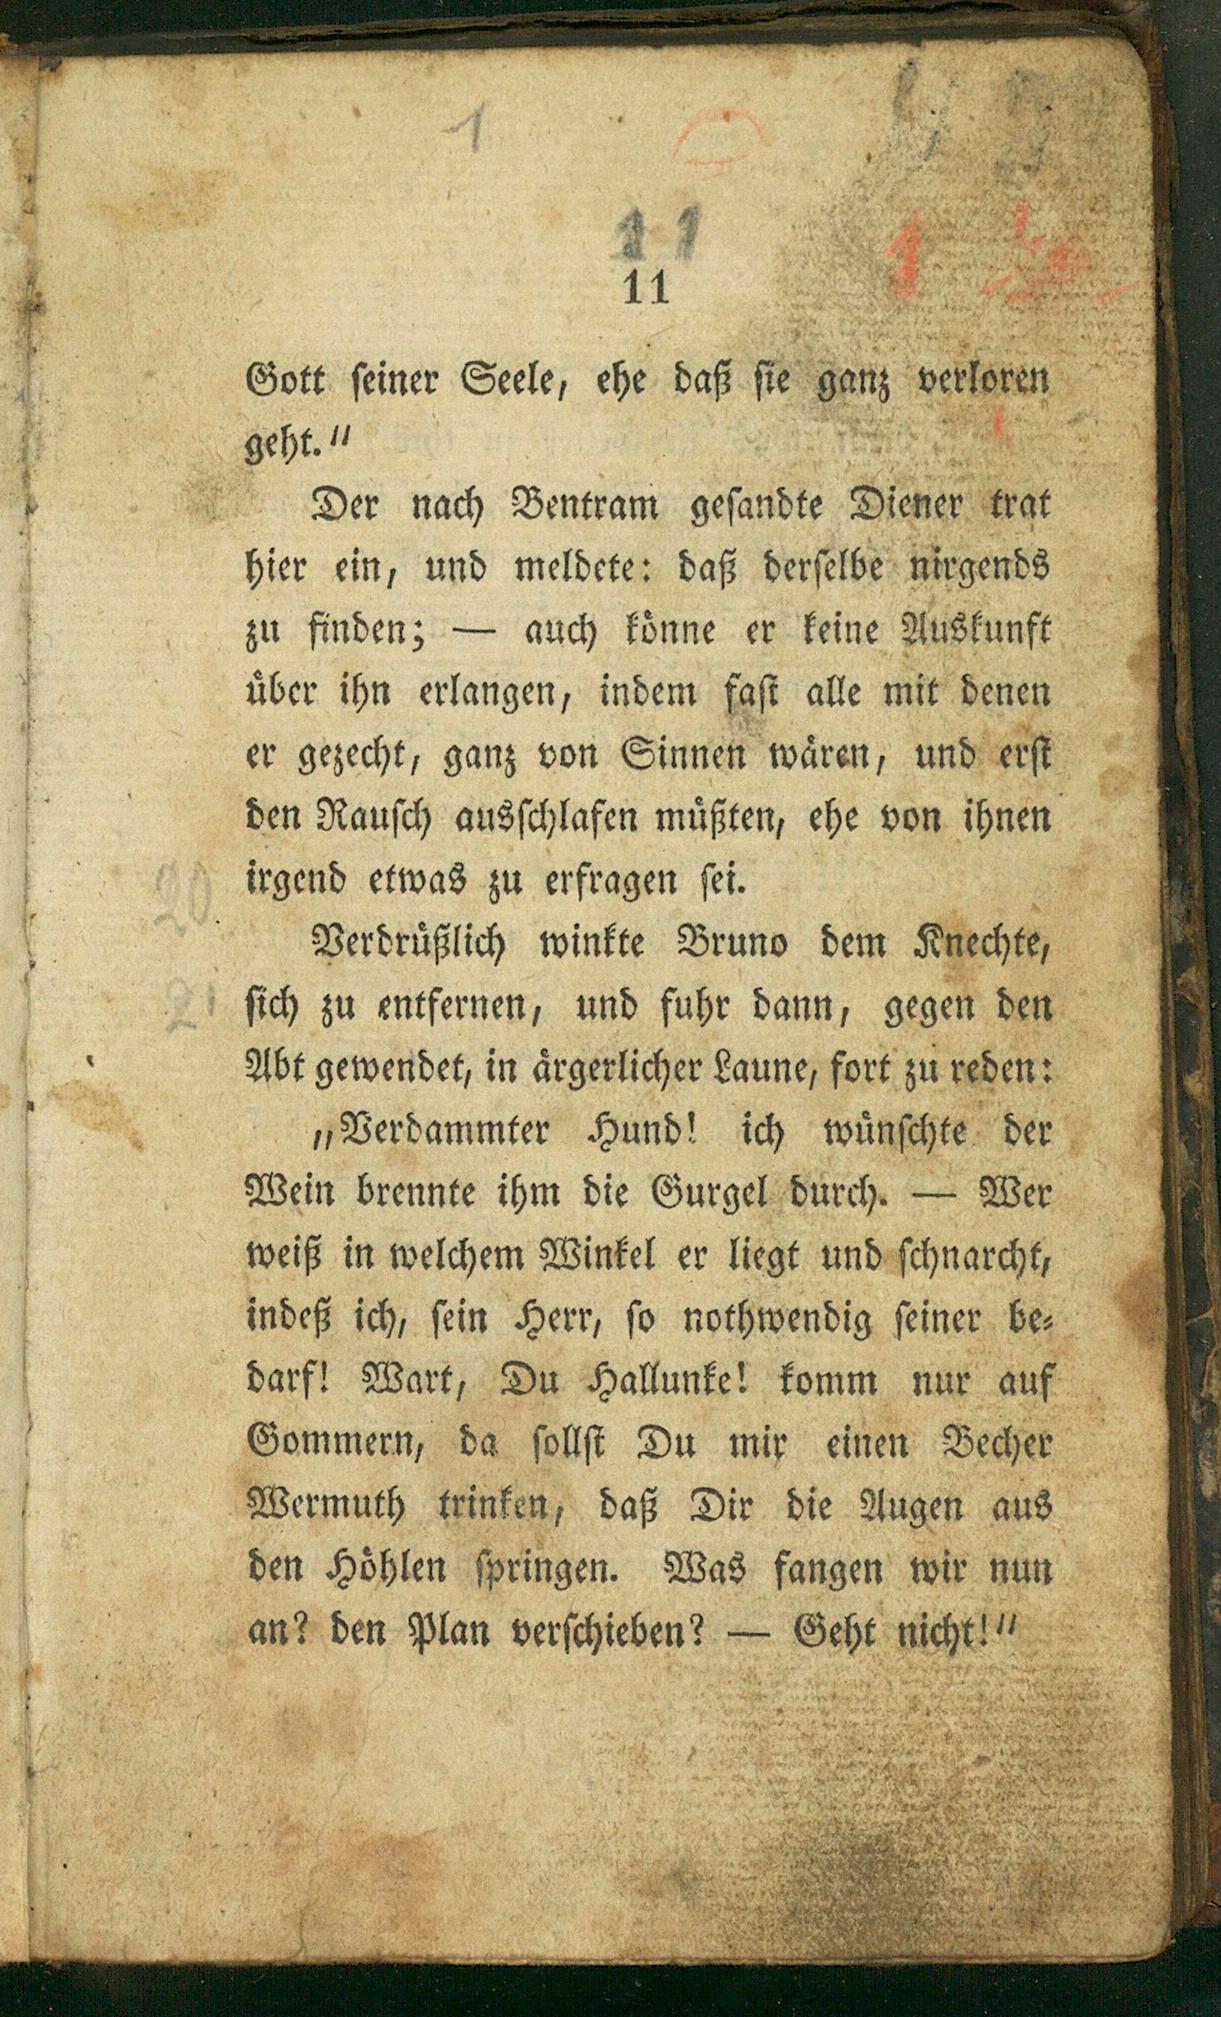 1
11
1
11
Gott seiner Seele, ehe daß sie ganz verloren
geht.“
Der nach Bentram gesandte Diener trat
hier ein, und meldete: daß derselbe nirgends
zu finden; — auch könne er keine Auskunft
über ihn erlangen, indem fast alle mit denen
er gezecht, ganz von Sinnen wären, und erst
den Rausch ausschlafen müßten, ehe von ihnen
irgend etwas zu erfragen sei.
20
Verdrüßlich winkte Bruno dem Knechte,
21
sich zu entfernen, und fuhr dann, gegen den
Abt gewendet, in ärgerlicher Laune, fort zu reden:
„Verdammter Hund! ich wünschte der
Wein brennte ihm die Gurgel durch. — Wer
weiß in welchem Winkel er liegt und schnarcht,
indeß ich, sein Herr, so nothwendig seiner be-
darf! Wart, Du Hallunke! komm nur auf
Gommern, da sollst Du mir einen Becher
Wermuth trinken, daß Dir die Augen aus
den Höhlen springen. Was fangen wir nun
an? den Plan verschieben? — Geht nicht!“